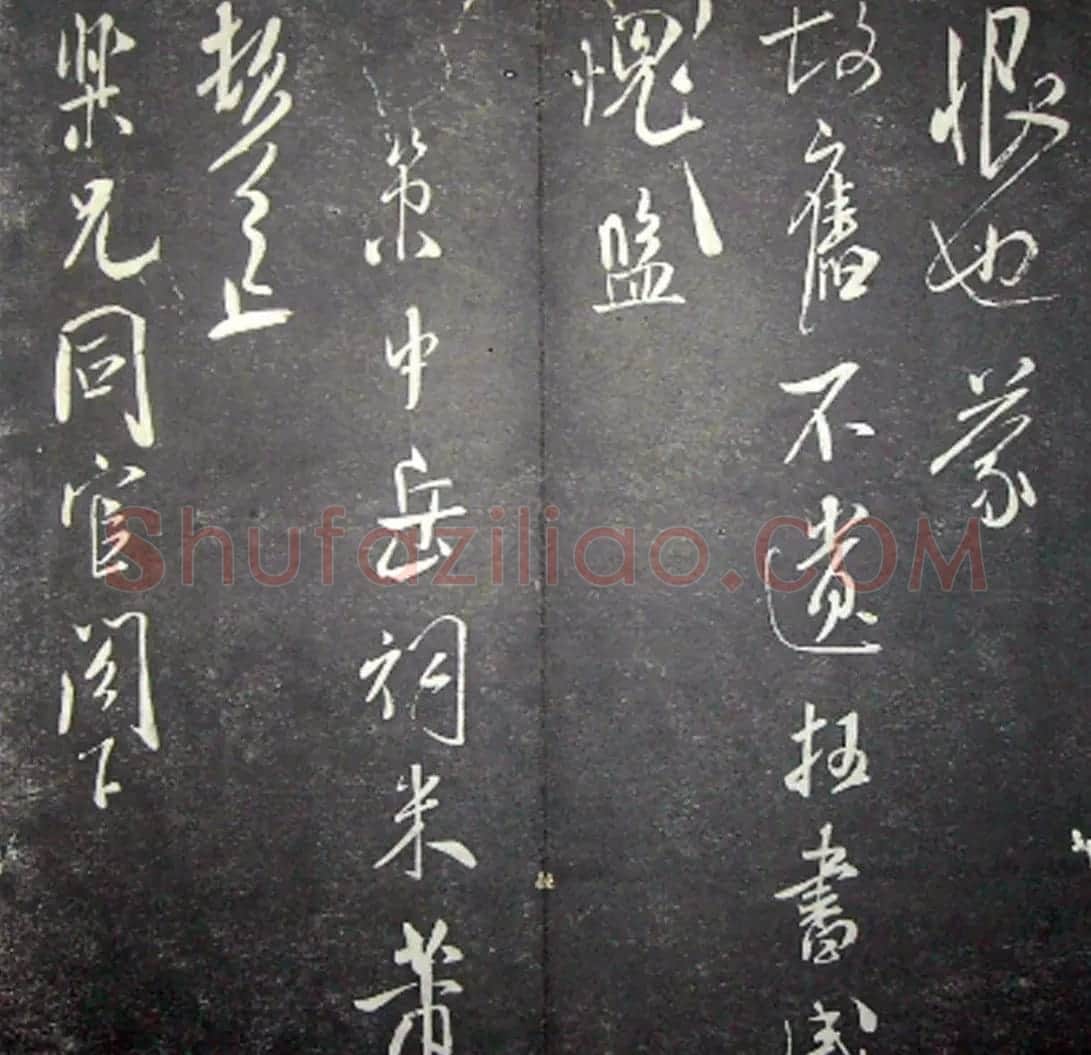 恨也蒙
故舊不遺枉書感
愧
中岳祠米芾
頓首上
樂兄同官閣下
Shufaziliao.COM